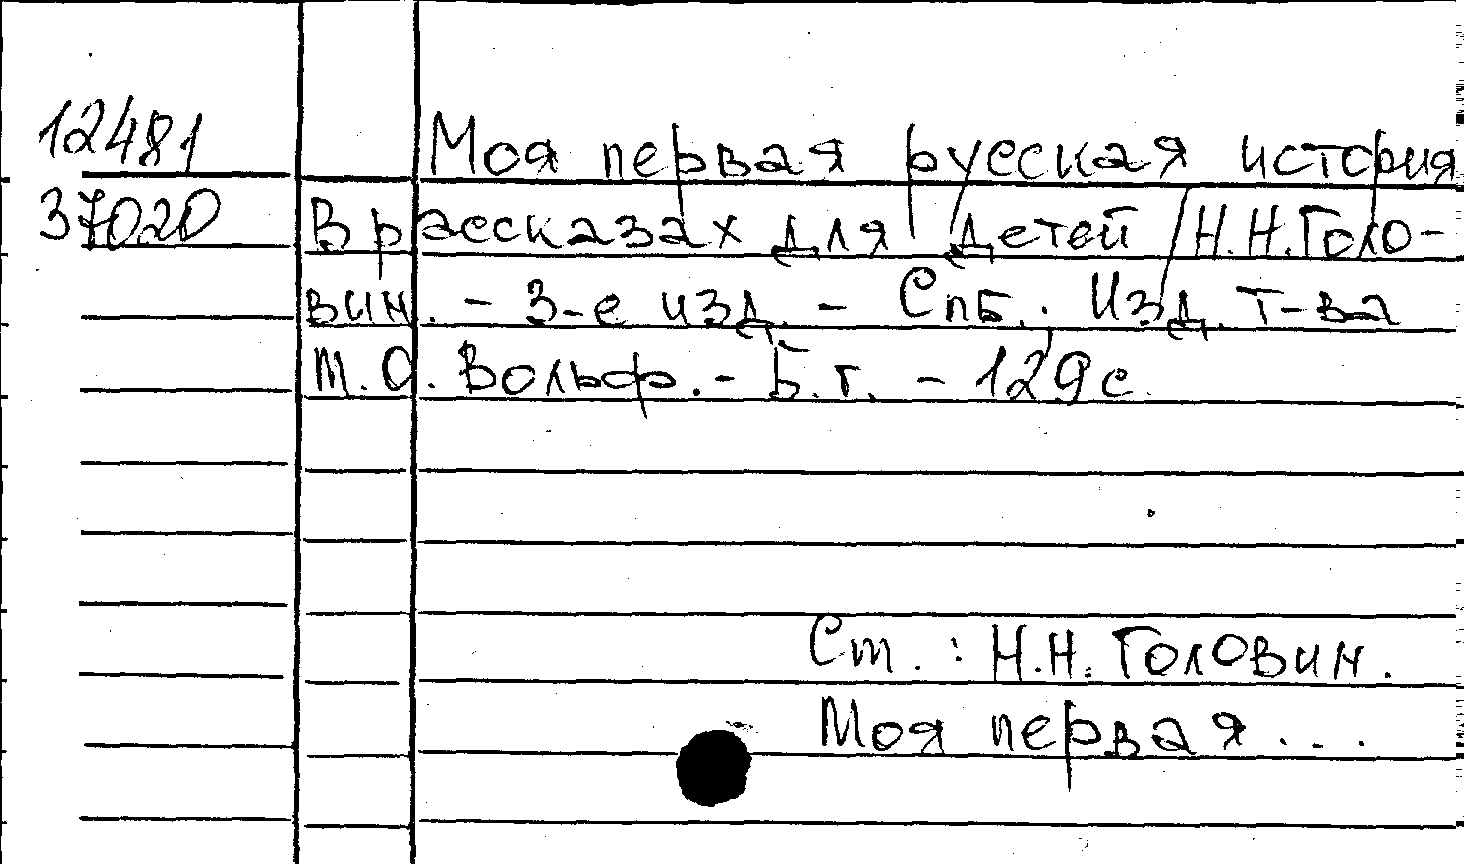 12481
Моя первая русская история
37020
в рассказах для детей / Н.Н.Голо-
вин. - 3-е изд. - Спб.: Изд. т-ва
М.О. Вольф. - Б.г. - 129 с.
Ст.: Н.Н. Головин.
Моя первая...